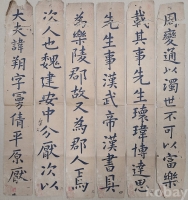 大夫諱朔字曼倩平原厭
次人也魏建安中分厭次以
為樂陵郡故又為郡人焉
先生事漢武帝漢書具
載其事先生瓌瑋博達思
周變通以濁世不可以富樂